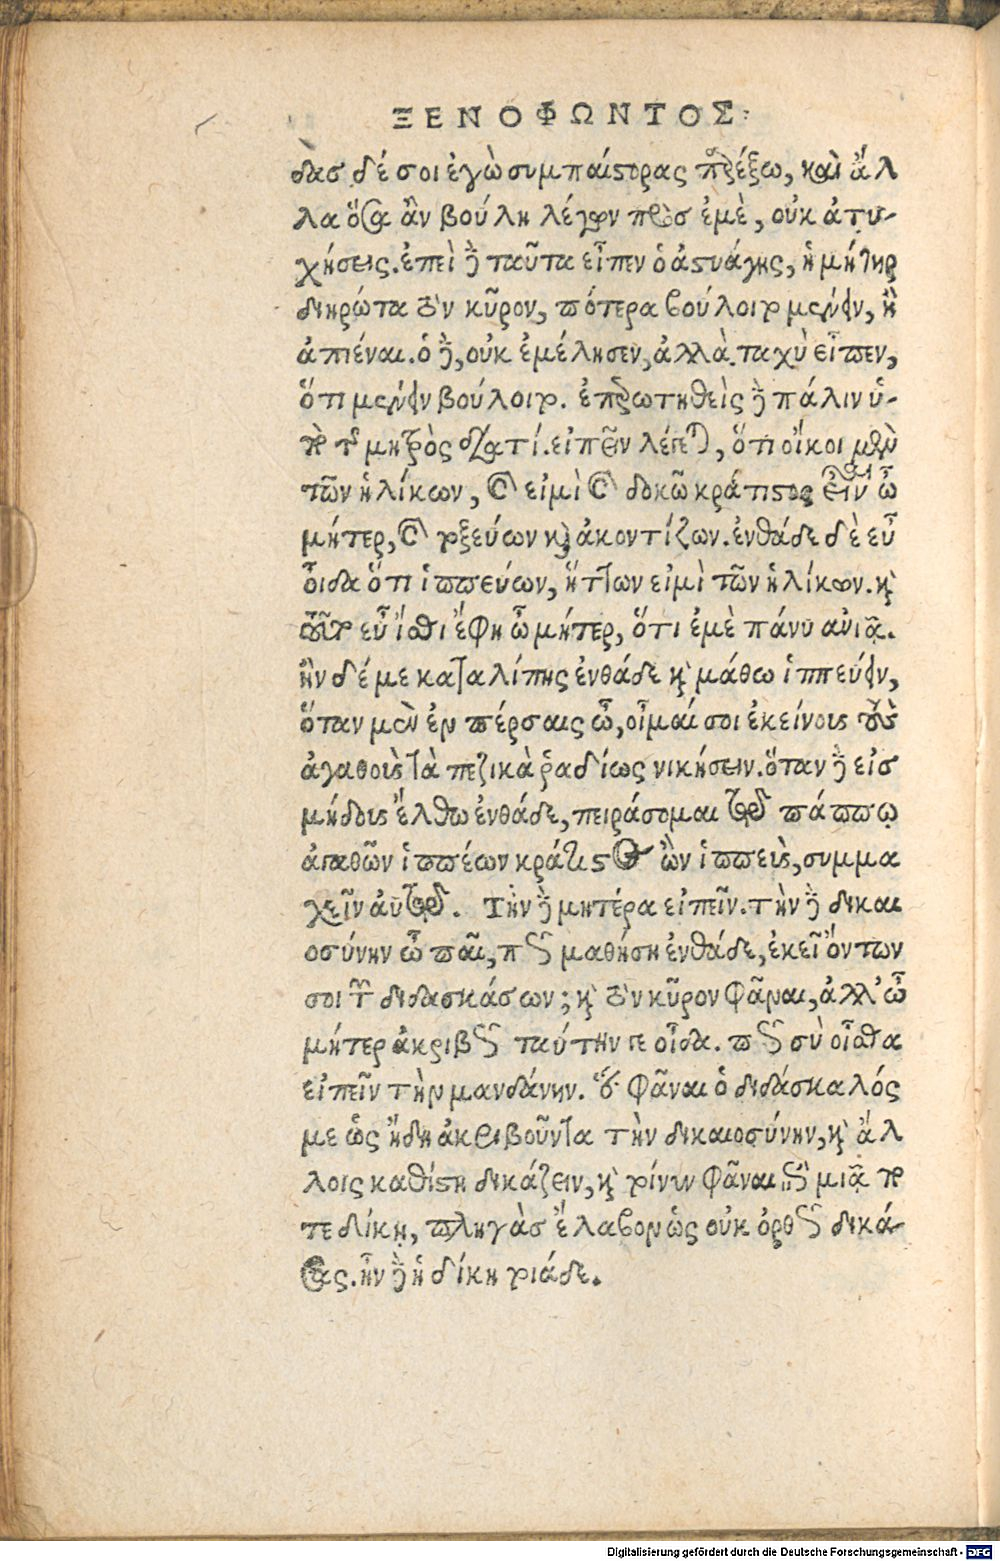 ΞΕΝΟΦΩΝΤΟΣ
δας δέ σοι ἐγὼ συμπαίστορας παρέξω, καὶ ἄλ
λα ὅσα ἂν βούλῃ λέγων πρὸς ἐμὲ, οὐκ ἀτυ-
χήσεις. ἐπεὶ δὲ ταῦτα εἶπεν ὁ ἀστυάγης, ἡ μήτηρ
διηρώτα τὸν κῦρον, πότερα βούλοιτο μένειν, ἢ
ἀπιέναι. ὁ δὲ, οὐκ ἐμέλησεν, ἀλλὰ ταχὺ εἶπεν,
ὅτι μένειν βούλοιτο. ἐπερωτηθεὶς δὲ πάλιν ὑ-
πὸ τῆς μητρὸς διατί. εἰπεῖν λέγεται, ὅτι οἴκοι μὲν
τῶν ἡλίκων, καὶ εἰμὶ καὶ δοκῶ κράτιστος εἶναι ὦ
μήτερ, καὶ τοξεύων καὶ ἀκοντίζων. ἐνθάδε δὲ εὖ
οἶδα ὅτι ἱππεύων, ἥττων εἰμὶ τῶν ἡλίκων. καὶ
τοῦτο εὖ ἴσθι ἔφη ὦ μῆτερ, ὅτι ἐμὲ πάνυ ἀνιᾷ.
ἢν δέ με καταλίπῃς ἐνθάδε καὶ μάθω ἱππεύειν,
ὅταν μὲν ἐν πέρσαις ὦ, οἶμαί σοι ἐκείνους τοὺς
ἀγαθοὺς τὰ πεζικὰ ῥᾳδίως νικήσειν. ὅταν δὲ εἰς
μήδους ἔλθω ἐνθάδε, πειράσομαι τῷ πάππῳ
ἀγαθῶν ἱππέων κράτιστος ὢν ἱππεὺς, συμμα
χεῖν αὐτῷ. Τὴν δὲ μητέρα εἰπεῖν. τὴν δὲ δικαι
οσύνην ὦ παῖ, πῶς μαθήσῃ ἐνθάδε, ἐκεῖ ὄντων
σοι τῶν διδασκάλων; καὶ τὸν κῦρον φᾶναι, ἀλλ' ὦ
μῆτερ ἀκριβῶς ταύτην γε οἶδα. πῶς σὺ οἶσθα
εἰπεῖν τὴν μανδάνην. ὅτι φᾶναι ὁ διδάσκαλός
με ὡς ἤδη ἀκριβοῦντα τὴν δικαιοσύνην, καὶ ἄλ
λοις καθίστη δικάζειν, καὶ τοίνυν φᾶναι ἐπὶ μιᾷ πο
τε δίκῃ, πληγὰς ἔλαβον ὡς οὐκ ὀρθῶς δικά-
σας. ἦν δὲ ἡ δίκη τοιάδε.
Digitalisierung gefördert durch die Deutsche Forschungsgemeinschaft - DFG